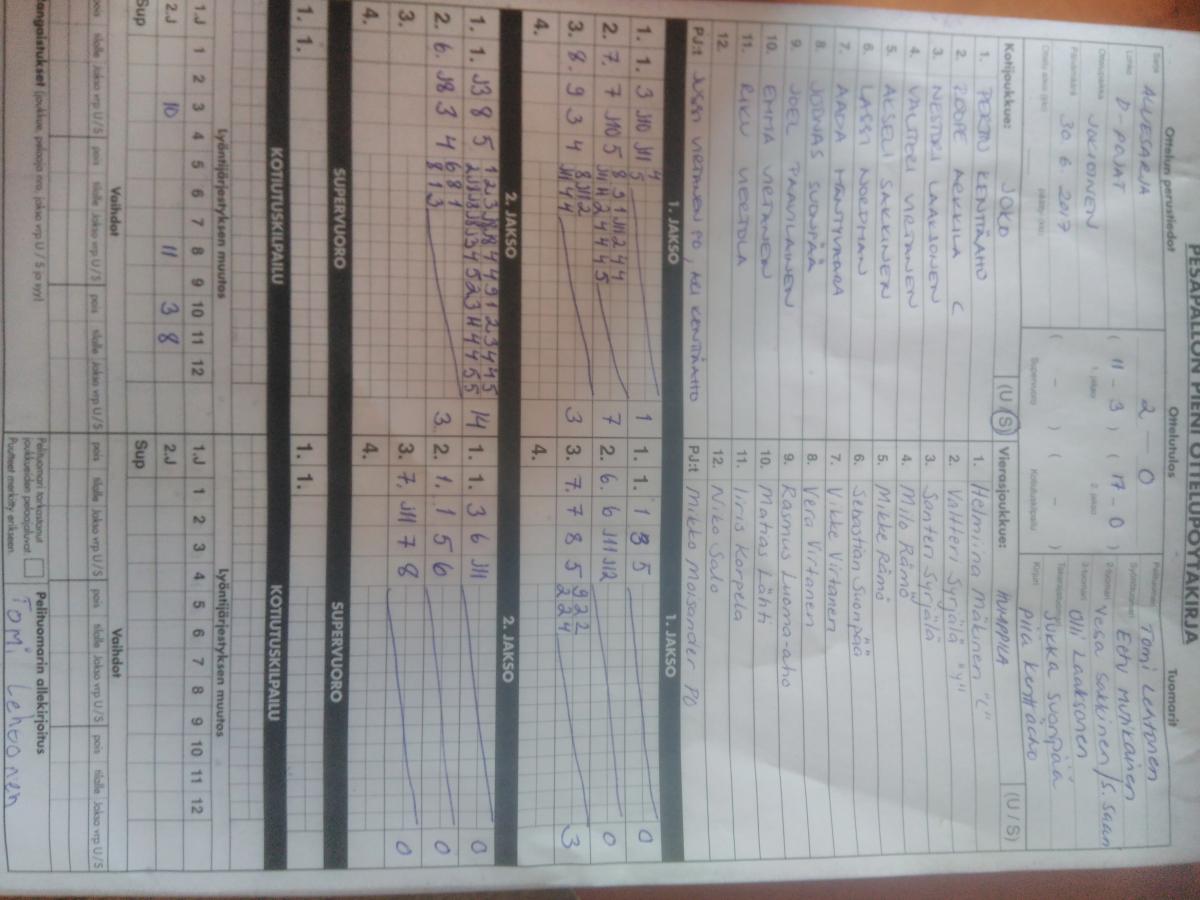 PESÄPALLON PIENI OTTELUPÖYTÄKIRJA
Ottelun perustiedot
Sarja ALUESARJA
Luokka D-POJAT
Ottelupaikka JOKIOINEN
Päivämäärä 30.6.2017
Ottelutulos
2 - 0
1. jakso 2. jakso
( 11 - 3 ) ( 17 - 0 )
Supervuoro Kotiutuskilpailu
( - ) ( - )
Tuomarit
Pelituomari Tomi Lehtonen
Syöttötuomari Eetu Mutikainen
2-tuomari Vesa Sakkinen / S. Saari
3-tuomari Olli Laaksonen
Takarajatuomari Jukka Suonpää
Kirjuri Piia Kenttäaho
Kotijoukkue: JOKO (U / S)
1. PERTTU KENTTÄAHO
2. ROOPE MERKKILÄ C
3. NESTORI LAAKSONEN
4. VALTTERI VIRTANEN
5. AKSELI SAKKINEN
6. LASSI NORDMAN
7. AADA MÄNTYVAARA
8. JOONAS SUONPÄÄ
9. JOEL PAAVILAINEN
10. EMMA VIRTANEN
11. RIKU VIERTOLA
12.
PJ:t JUSSI VIRTANEN PO, AKI KENTTÄAHO
Vierasjoukkue: HUMPPILA (U / S)
1. Helmiina Mäkinen "C"
2. Valtteri Syrjälä "V"
3. Santeri Syrjälä
4. Milo Rämö
5. Mikke Rämö
6. Sebastian Suonpää
7. Vikke Virtanen
8. Vera Virtanen
9. Rasmus Luoma-aho
10. Matias Lähti
11. Iiris Karpela
12. Niko Salo
PJ:t Mikko Moisander PO
1. JAKSO 1. JAKSO
1. 1. 3 J10 J11 1
2. 7. 7 J10 5 7
3. 8. 9 3 4 3
4.
1. 1. 1 3 5 0
2. 6. 6 J11 J12 0
3. 7. 7 8 5 3
4.
2. JAKSO 2. JAKSO
1. 1. J3 8 5 14
2. 6. J8 3 4 3
3.
4.
1. 1. 3 6 J11 0
2. 1. 1 5 6 0
3. 7. J11 7 8 0
4.
SUPERVUORO SUPERVUORO
1. 1.
1. 1.
KOTIUTUSKILPAILU KOTIUTUSKILPAILU
Lyöntijärjestyksen muutos
1.J 1 2 3 4 5 6 7 8 9 10 11 12
2.J 10 11 3 8
Sup
Lyöntijärjestyksen muutos
1.J 1 2 3 4 5 6 7 8 9 10 11 12
2.J
Sup
Vaihdot Vaihdot
pois tilalle Jakso vrp U / S pois tilalle Jakso vrp U / S pois tilalle Jakso vrp U / S
pois tilalle Jakso vrp U / S pois tilalle Jakso vrp U / S pois tilalle Jakso vrp U / S
Rangaistukset (joukkue, pelaaja nro, jakso vrp U / S ja syy)
Pelituomari tarkastanut joukkueiden pelaajaluvat
Puutteet merkitty erikseen
Pelituomarin allekirjoitus
Tomi Lehtonen